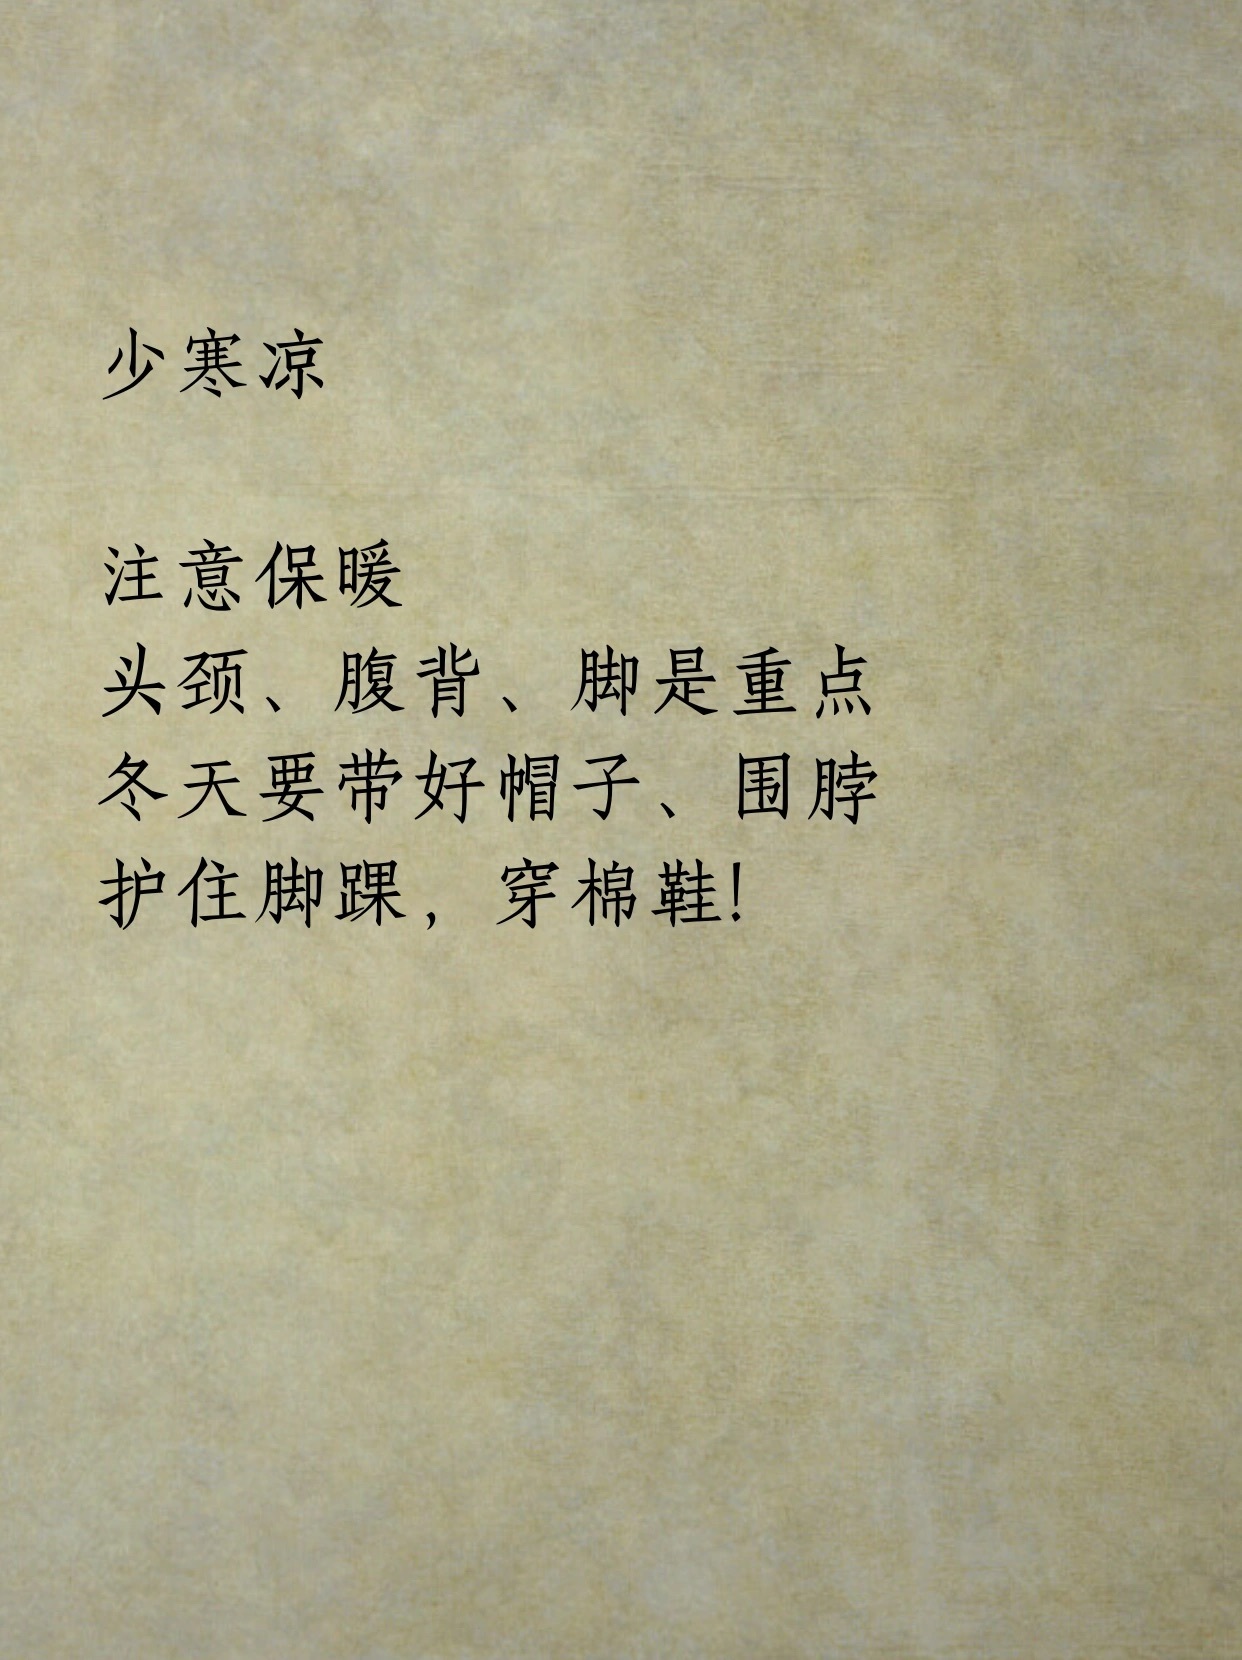 少寒凉
注意保暖
头颈、腹背、脚是重点
冬天要带好帽子、围脖
护住脚踝，穿棉鞋!